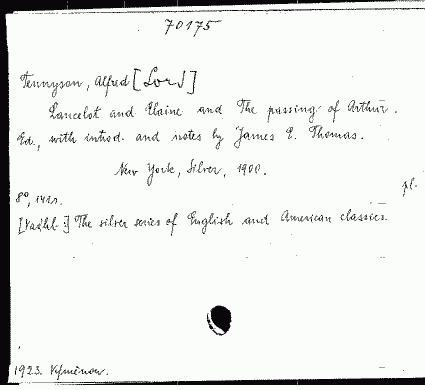 70175
Tennyson, Alfred [Lord]
Lancelot and Elaine and The passing of Arthur.
Ed., with introd. and notes by James E. Thomas.
New York, Silver, 1900.
pl.
8°, 141s.
The silver series of English and American classics.
1923. Výměnou.